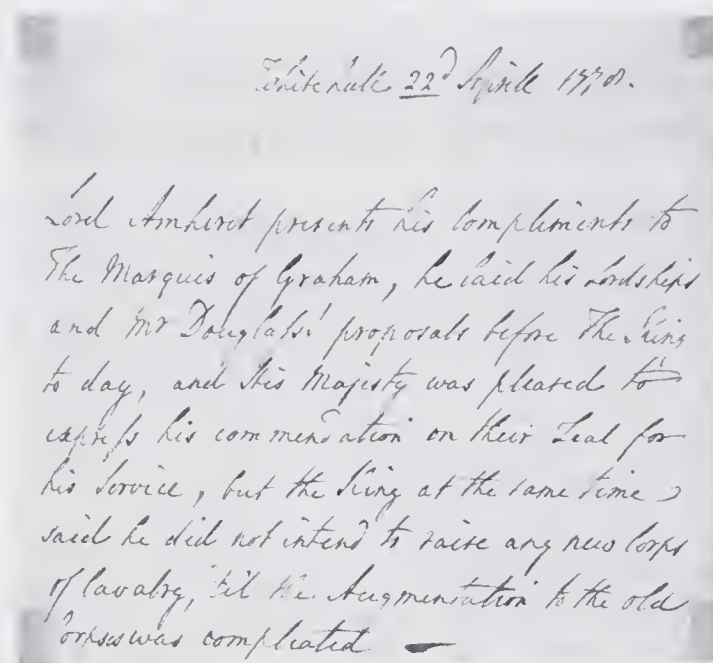 Whitehall 22d Aprill 1778.
Lord Amherst presents his Compliments to
The Marquis of Graham, he laid his Lordships
and Mr Douglass' proposals before The King
to day, and His Majesty was pleased to
express his commendation on their Zeal for
his Service, but the King at the same time
said he did not intend to raise any new Corps
of Cavalry, 'til the Augmentation to the old
Corpses was compleated —